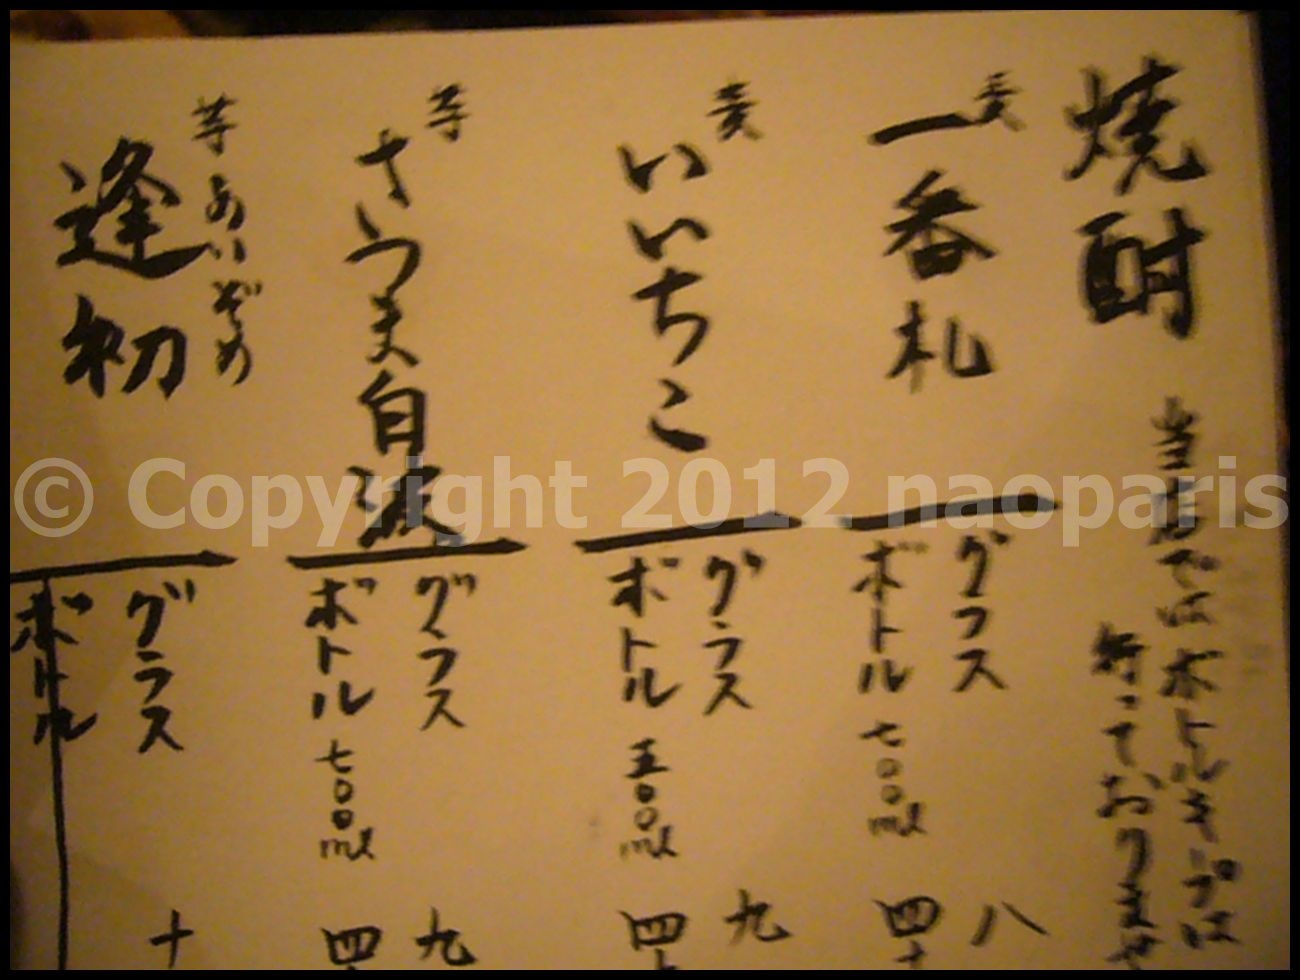 焼酎
当店ではボトルキープは
行っておりませ
麦
一番札
グラス 八
ボトル 七〇〇ml 四十
麦
いいちこ
グラス 九
ボトル 五〇〇ml 四十
芋
さつま白波
グラス 九
ボトル 七〇〇ml 四十
芋
あいぞめ
逢初
グラス 十
ボトル
© Copyright 2012 naoparis